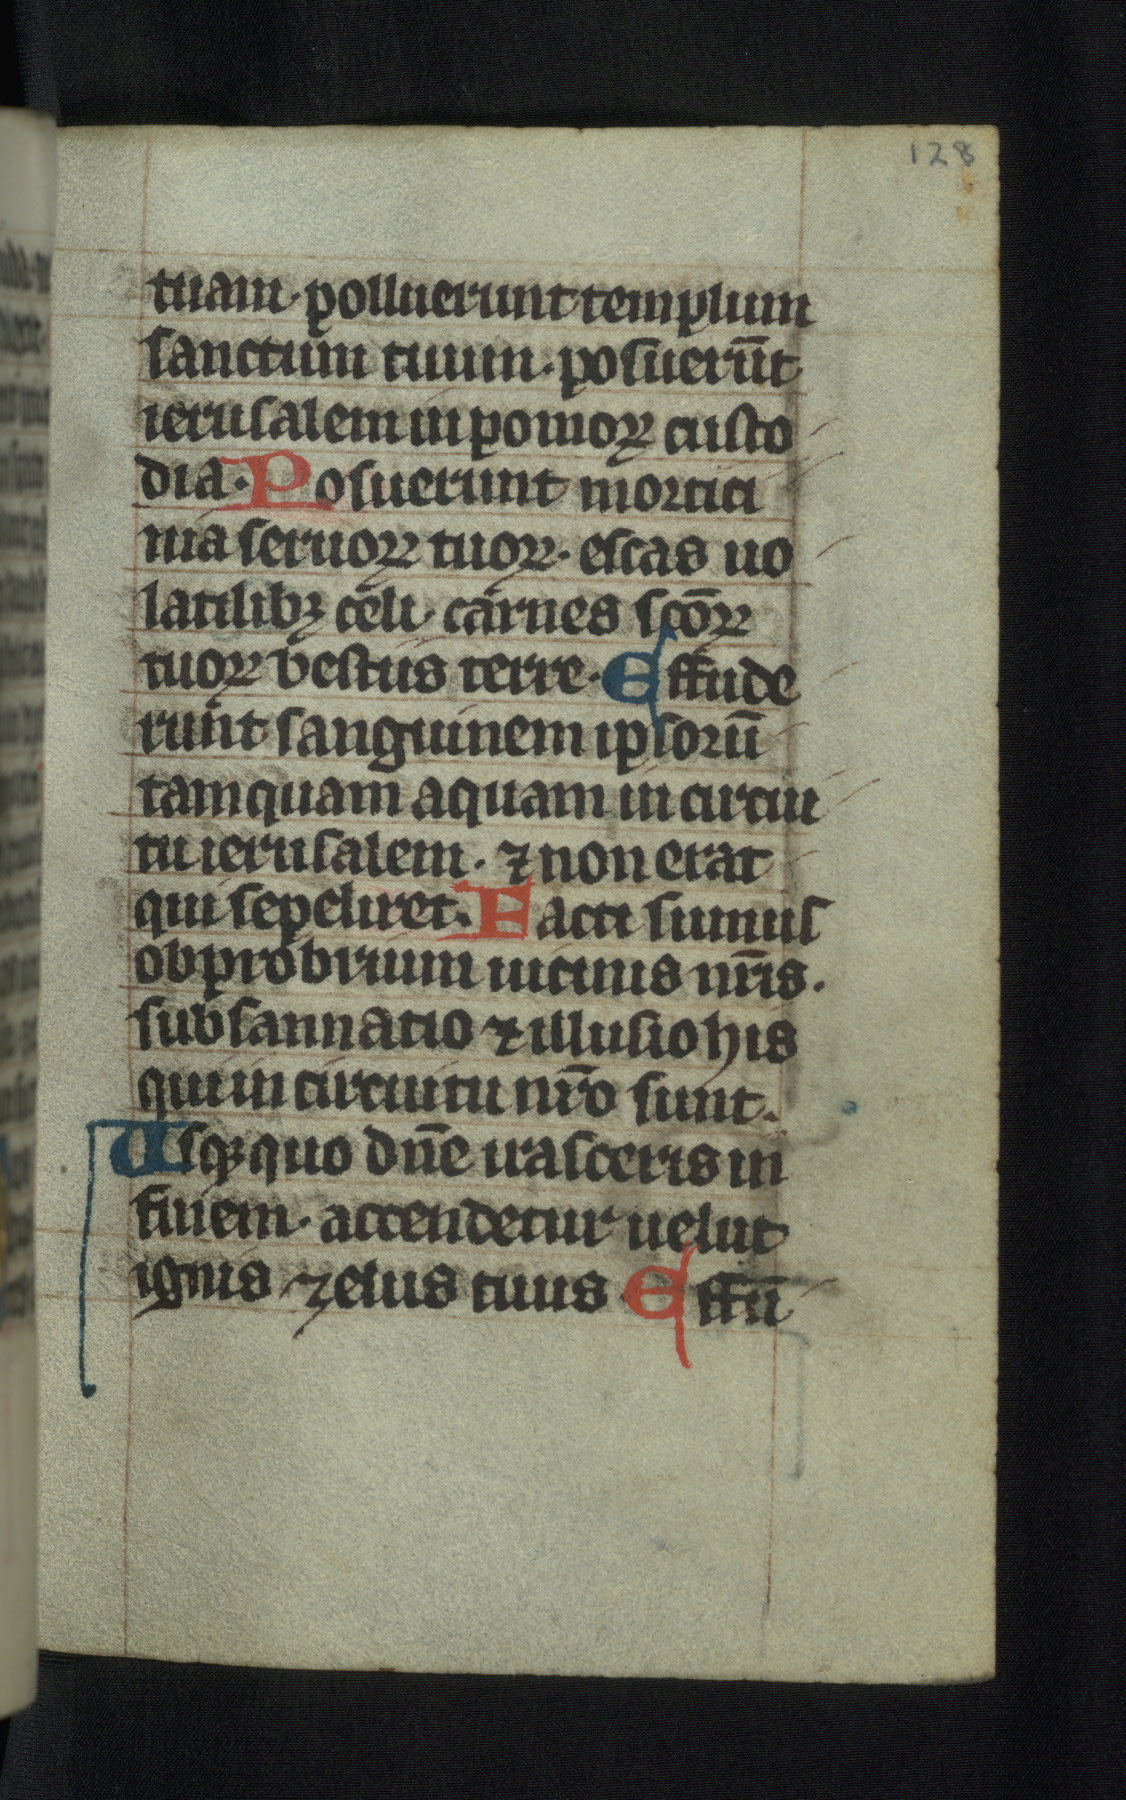 128
tuam · polluerunt templum
sanctum tuum · posuerūt
ierusalem in pomoꝝ custo
dia · Posuerunt mortici
nia seruoꝝ tuoꝝ · escas uo
latilibꝫ celi · carnes scōꝝ
tuoꝝ bestiis terre · Effude
runt sanguinem ipsorū
tamquam aquam in circui
tu ierusalem · ⁊ non erat
qui sepeliret. Facti sumus
obprobrium uicinis nr̄is ·
subsannatio ⁊ illusio his
qui in circuitu nr̄o sunt.
Usqꝫ quo dn̄e irasceris in
finem · accendetur uelut
ignis zelus tuus Effū